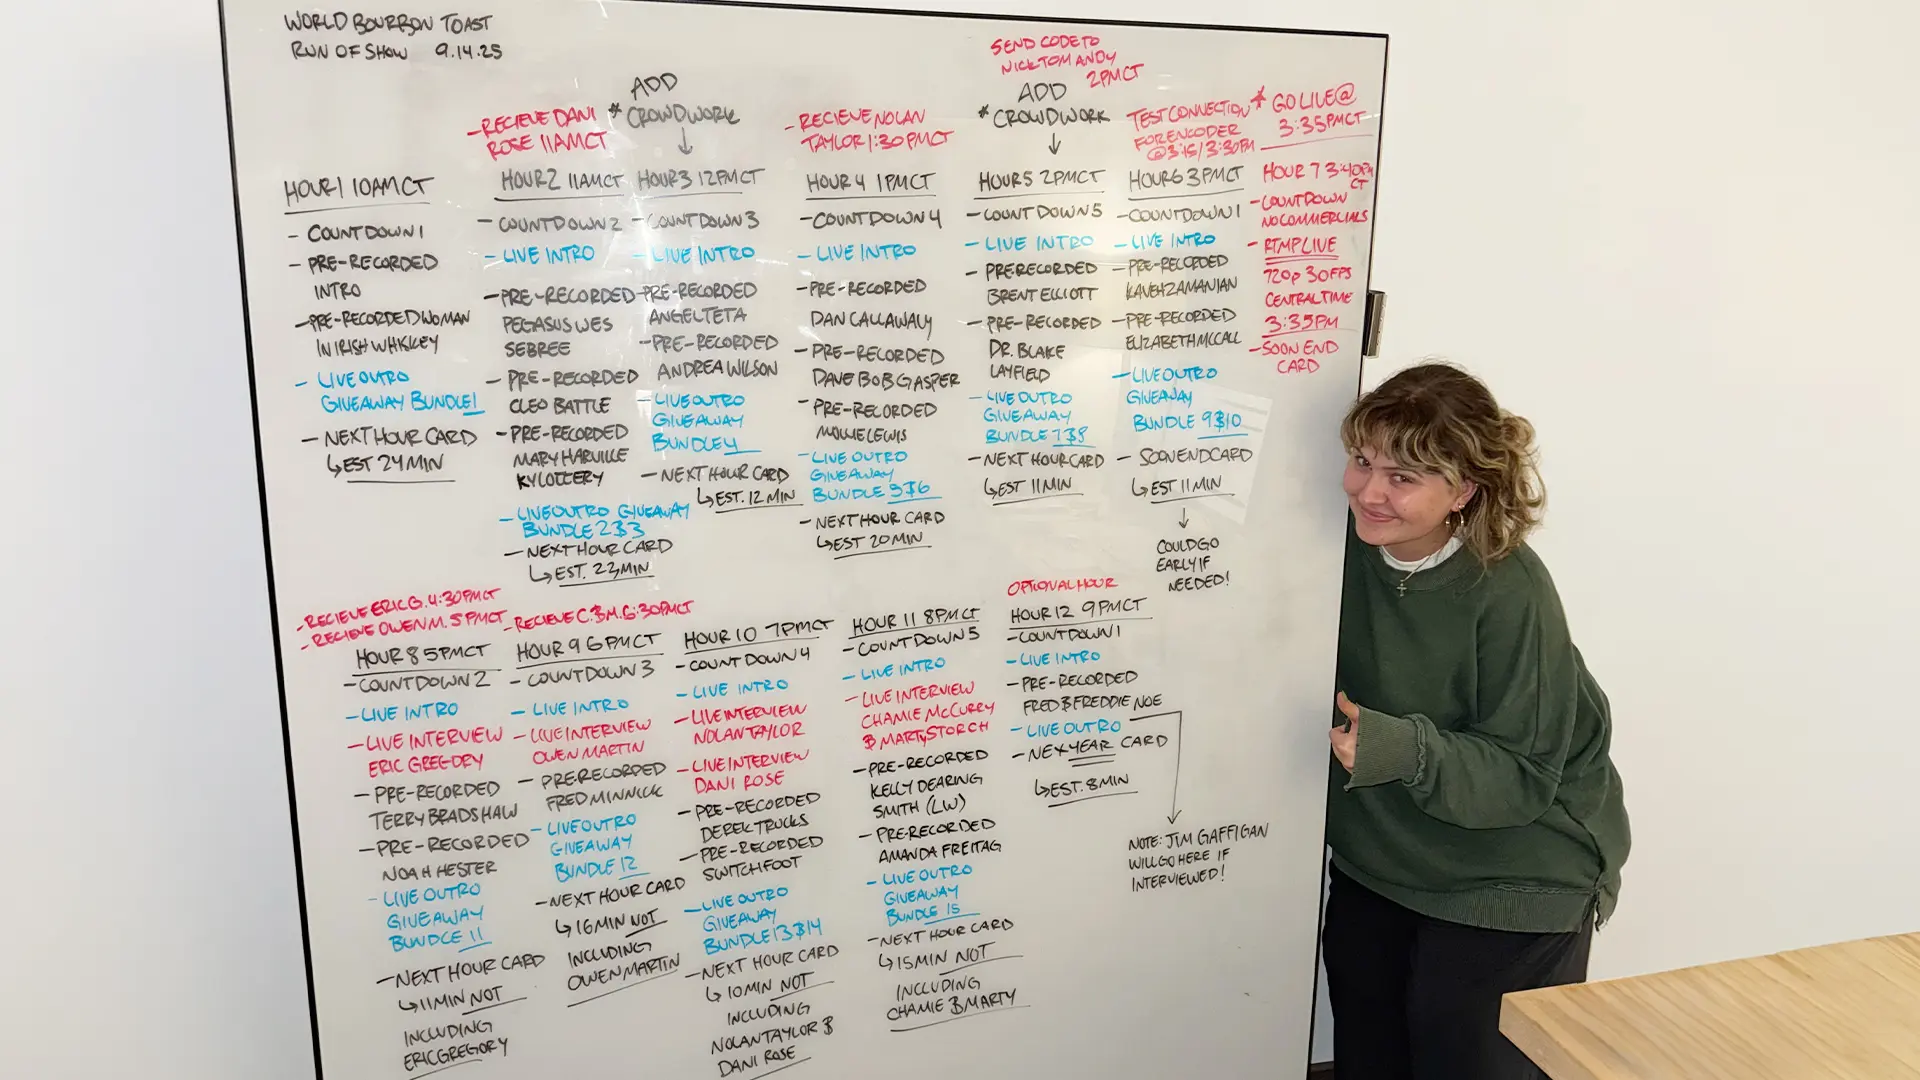 WORLD BOURBON TOAST
RUN OF SHOW 9.14.25
- RECIEVE DANI
ROSE 11AM CT
ADD
* CROWDWORK
- RECIEVE NOLAN
TAYLOR 1:30PM CT
SEND CODE TO
NICK TOM ANDY
2PM CT
ADD
* CROWDWORK
TEST CONNECTION
FOR ENCODER
@3:15/3:30PM
* GO LIVE @
3:35PM CT
HOUR 1 10AM CT
- COUNTDOWN 1
- PRE-RECORDED
INTRO
- PRE-RECORDED WOMAN
IN IRISH WHISKEY
- LIVE OUTRO
GIVEAWAY BUNDLE 1
- NEXT HOUR CARD
↳ EST 24 MIN
HOUR 2 11AM CT
- COUNTDOWN 2
- LIVE INTRO
- PRE-RECORDED
PEGASUS WES
SEBREE
- PRE-RECORDED
CLEO BATTLE
- PRE-RECORDED
MARY HARVILLE
KY LOTTERY
- LIVE OUTRO GIVEAWAY
BUNDLE 2 & 3
- NEXT HOUR CARD
↳ EST. 22 MIN
HOUR 3 12PM CT
- COUNTDOWN 3
- LIVE INTRO
- PRE-RECORDED
ANGEL TETA
- PRE-RECORDED
ANDREA WILSON
- LIVE OUTRO
GIVEAWAY
BUNDLE 4
- NEXT HOUR CARD
↳ EST. 12 MIN
HOUR 4 1PM CT
- COUNTDOWN 4
- LIVE INTRO
- PRE-RECORDED
DAN CALLAWAY
- PRE-RECORDED
DAVE BOB GASPER
- PRE-RECORDED
MOLLIE LEWIS
- LIVE OUTRO
GIVEAWAY
BUNDLE 5 & 6
- NEXT HOUR CARD
↳ EST 20 MIN
HOUR 5 2PM CT
- COUNTDOWN 5
- LIVE INTRO
- PRERECORDED
BRENT ELLIOTT
- PRE-RECORDED
DR. BLAKE
LAYFIELD
- LIVE OUTRO
GIVEAWAY
BUNDLE 7 & 8
- NEXT HOUR CARD
↳ EST 11 MIN
HOUR 6 3PM CT
- COUNTDOWN 1
- LIVE INTRO
- PRE-RECORDED
KAVEH ZAMANIAN
- PRE-RECORDED
ELIZABETH MCCALL
- LIVE OUTRO
GIVEAWAY
BUNDLE 9 & 10
- SOON END CARD
↳ EST 11 MIN
COULD GO
EARLY IF
NEEDED!
HOUR 7 3:40PM
CT
- COUNTDOWN
NO COMMERCIALS
- RTMP LIVE
720p 30FPS
CENTRAL TIME
3:35PM
- SOON END
CARD
- RECIEVE ERIC G. 4:30PM CT
- RECIEVE OWEN M. 5PM CT
HOUR 8 5PM CT
- COUNTDOWN 2
- LIVE INTRO
- LIVE INTERVIEW
ERIC GREGORY
- PRE-RECORDED
TERRY BRADSHAW
- PRE-RECORDED
NOAH HESTER
- LIVE OUTRO
GIVEAWAY
BUNDLE 11
- NEXT HOUR CARD
↳ 11 MIN NOT
INCLUDING
ERIC GREGORY
- RECIEVE C. & M. 6:30PM CT
HOUR 9 6PM CT
- COUNTDOWN 3
- LIVE INTRO
- LIVE INTERVIEW
OWEN MARTIN
- PRERECORDED
FRED MINNICK
- LIVE OUTRO
GIVEAWAY
BUNDLE 12
- NEXT HOUR CARD
↳ 16 MIN NOT
INCLUDING
OWEN MARTIN
HOUR 10 7PM CT
- COUNTDOWN 4
- LIVE INTRO
- LIVE INTERVIEW
NOLAN TAYLOR
- LIVE INTERVIEW
DANI ROSE
- PRE-RECORDED
DEREK TRUCKS
- PRE-RECORDED
SWITCHFOOT
- LIVE OUTRO
GIVEAWAY
BUNDLE 13 & 14
- NEXT HOUR CARD
↳ 10 MIN NOT
INCLUDING
NOLAN TAYLOR &
DANI ROSE
HOUR 11 8PM CT
- COUNTDOWN 5
- LIVE INTRO
- LIVE INTERVIEW
CHAMIE McCURRY
& MARTY STORCH
- PRE-RECORDED
KELLY DEARING
SMITH (LW)
- PRE-RECORDED
AMANDA FREITAG
- LIVE OUTRO
GIVEAWAY
BUNDLE 15
- NEXT HOUR CARD
↳ 15 MIN NOT
INCLUDING
CHAMIE & MARTY
OPTIONAL HOUR
HOUR 12 9PM CT
- COUNTDOWN 1
- LIVE INTRO
- PRE-RECORDED
FRED & FREDDIE NOE
- LIVE OUTRO
- NEX YEAR CARD
↳ EST. 8 MIN
NOTE: JIM GAFFIGAN
WILL GO HERE IF
INTERVIEWED!